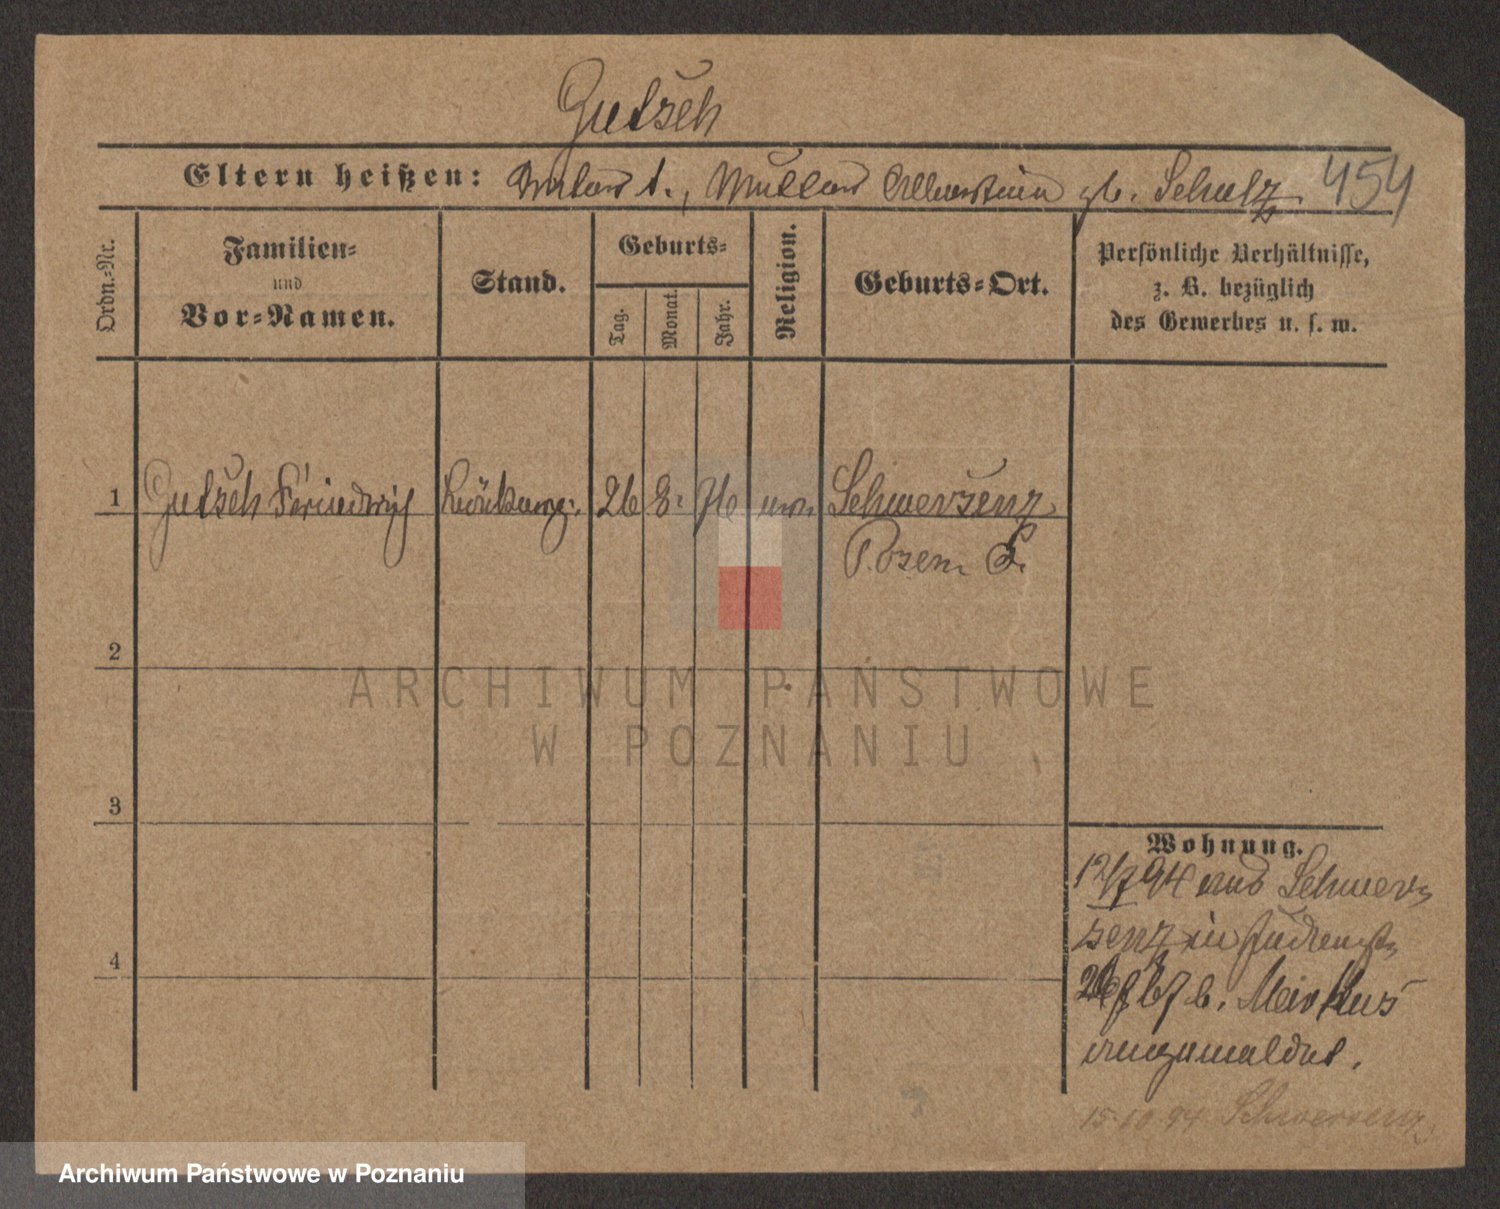 Gutsch
Eltern heißen: Vater †., Mutter geb. Schulz. 454
Ordn.-Nr.
Familien-
und
Vor-Namen.
Stand.
Geburts-
Tag.
Monat.
Jahr.
Religion.
Geburts-Ort.
Persönliche Verhältnisse,
z. B. bezüglich
des Gewerbes u. s. w.
1 Gutsch Friedrich 26 8. 76 Schwersenz
Posen
2
ARCHIWUM PAŃSTWOWE
W POZNANIU
3
4
Wohnung.
12/7 94 aus Schwer-
senz in Judenstr.
b. Markus
angemeldet.
15.10.94 Schwersenz
Archiwum Państwowe w Poznaniu